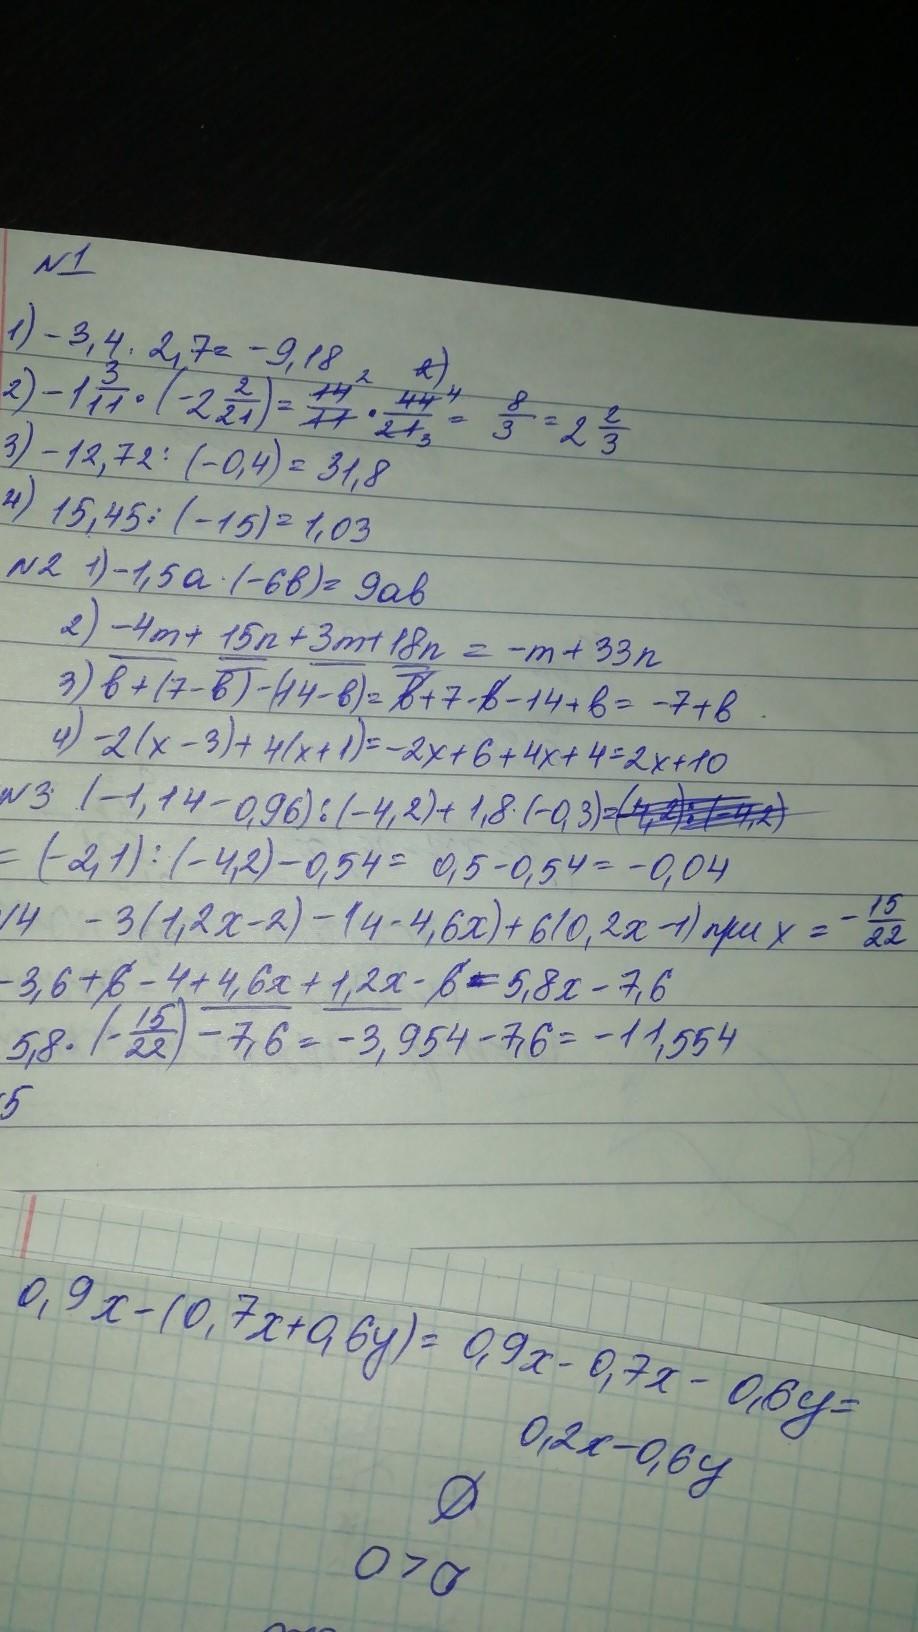 №1
1) -3,4 · 2,7 = -9,18 2)
2) -1 3/11 · (-2 2/21) = 14/11 ² · 44/21 ⁴ ₃ = 8/3 = 2 2/3
3) -12,72 : (-0,4) = 31,8
4) 15,45 : (-15) = 1,03
№2 1) -1,5a · (-6b) = 9ab
2) -4m + 15n + 3m + 18n = -m + 33n
3) b + (7 - b) - (14 - b) = b + 7 - b - 14 + b = -7 + b
4) -2(x - 3) + 4(x + 1) = -2x + 6 + 4x + 4 = 2x + 10
№3 (-1,14 - 0,96) : (-4,2) + 1,8 · (-0,3) = (4,2) : (-4,2)
= (-2,1) : (-4,2) - 0,54 = 0,5 - 0,54 = -0,04
№4 -3(1,2x - 2) - (4 - 4,6x) + 6(0,2x - 1) при x = -15/22
-3,6 + 6 - 4 + 4,6x + 1,2x - 6 = 5,8x - 7,6
5,8 · (-15/22) - 7,6 = -3,954 - 7,6 = -11,554
5
0,9x - (0,7x + 0,6y) = 0,9x - 0,7x - 0,6y =
0,2x - 0,6y
Ø